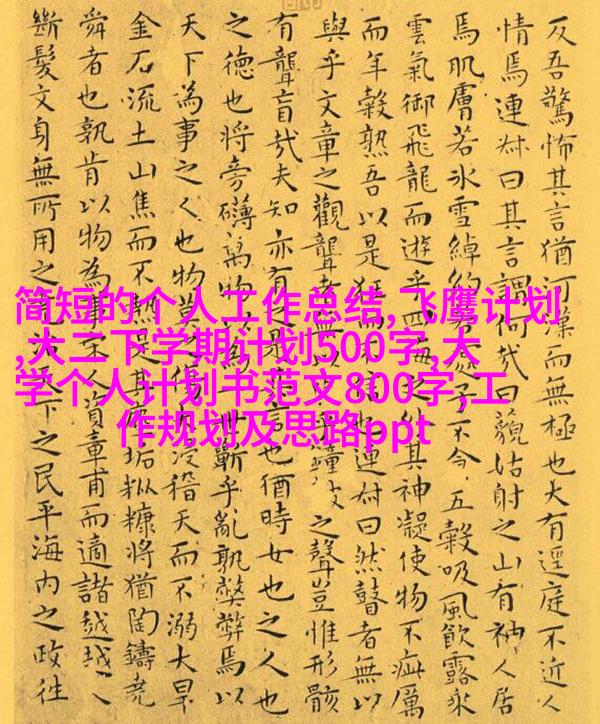 简短的个人工作总结,飞鹰计划
,大二下学期计划500字,大
学个人计划书范文800字,工
作规划及思路ppt
反吾驚怖其言猶河漢而無極也大有逕庭不近人
情焉連叔曰其言謂何哉曰藐姑射之山有神人居
焉肌膚若氷雪綽約子不食五穀吸風飲露乘
雲氣御飛龍而遊乎四海之外其神凝使物不疵厲
而年穀熟吾以是狂也連叔曰然瞽者無以
與乎文章之觀聾者鐘之聲豈惟形骸
有聾盲哉夫知亦有言也猶時女也之人也
之德也將旁礴萬物以為世蘄乎亂孰弊弊焉以
天下為事之人也物莫之浸稽天而不溺大旱
金石流土山焦而不熱是其垢粃糠將猶陶鑄堯
舜者也孰肯以物為事人資章甫而適諸越越人
斷髮文身無所用之天下之民平海內之政往